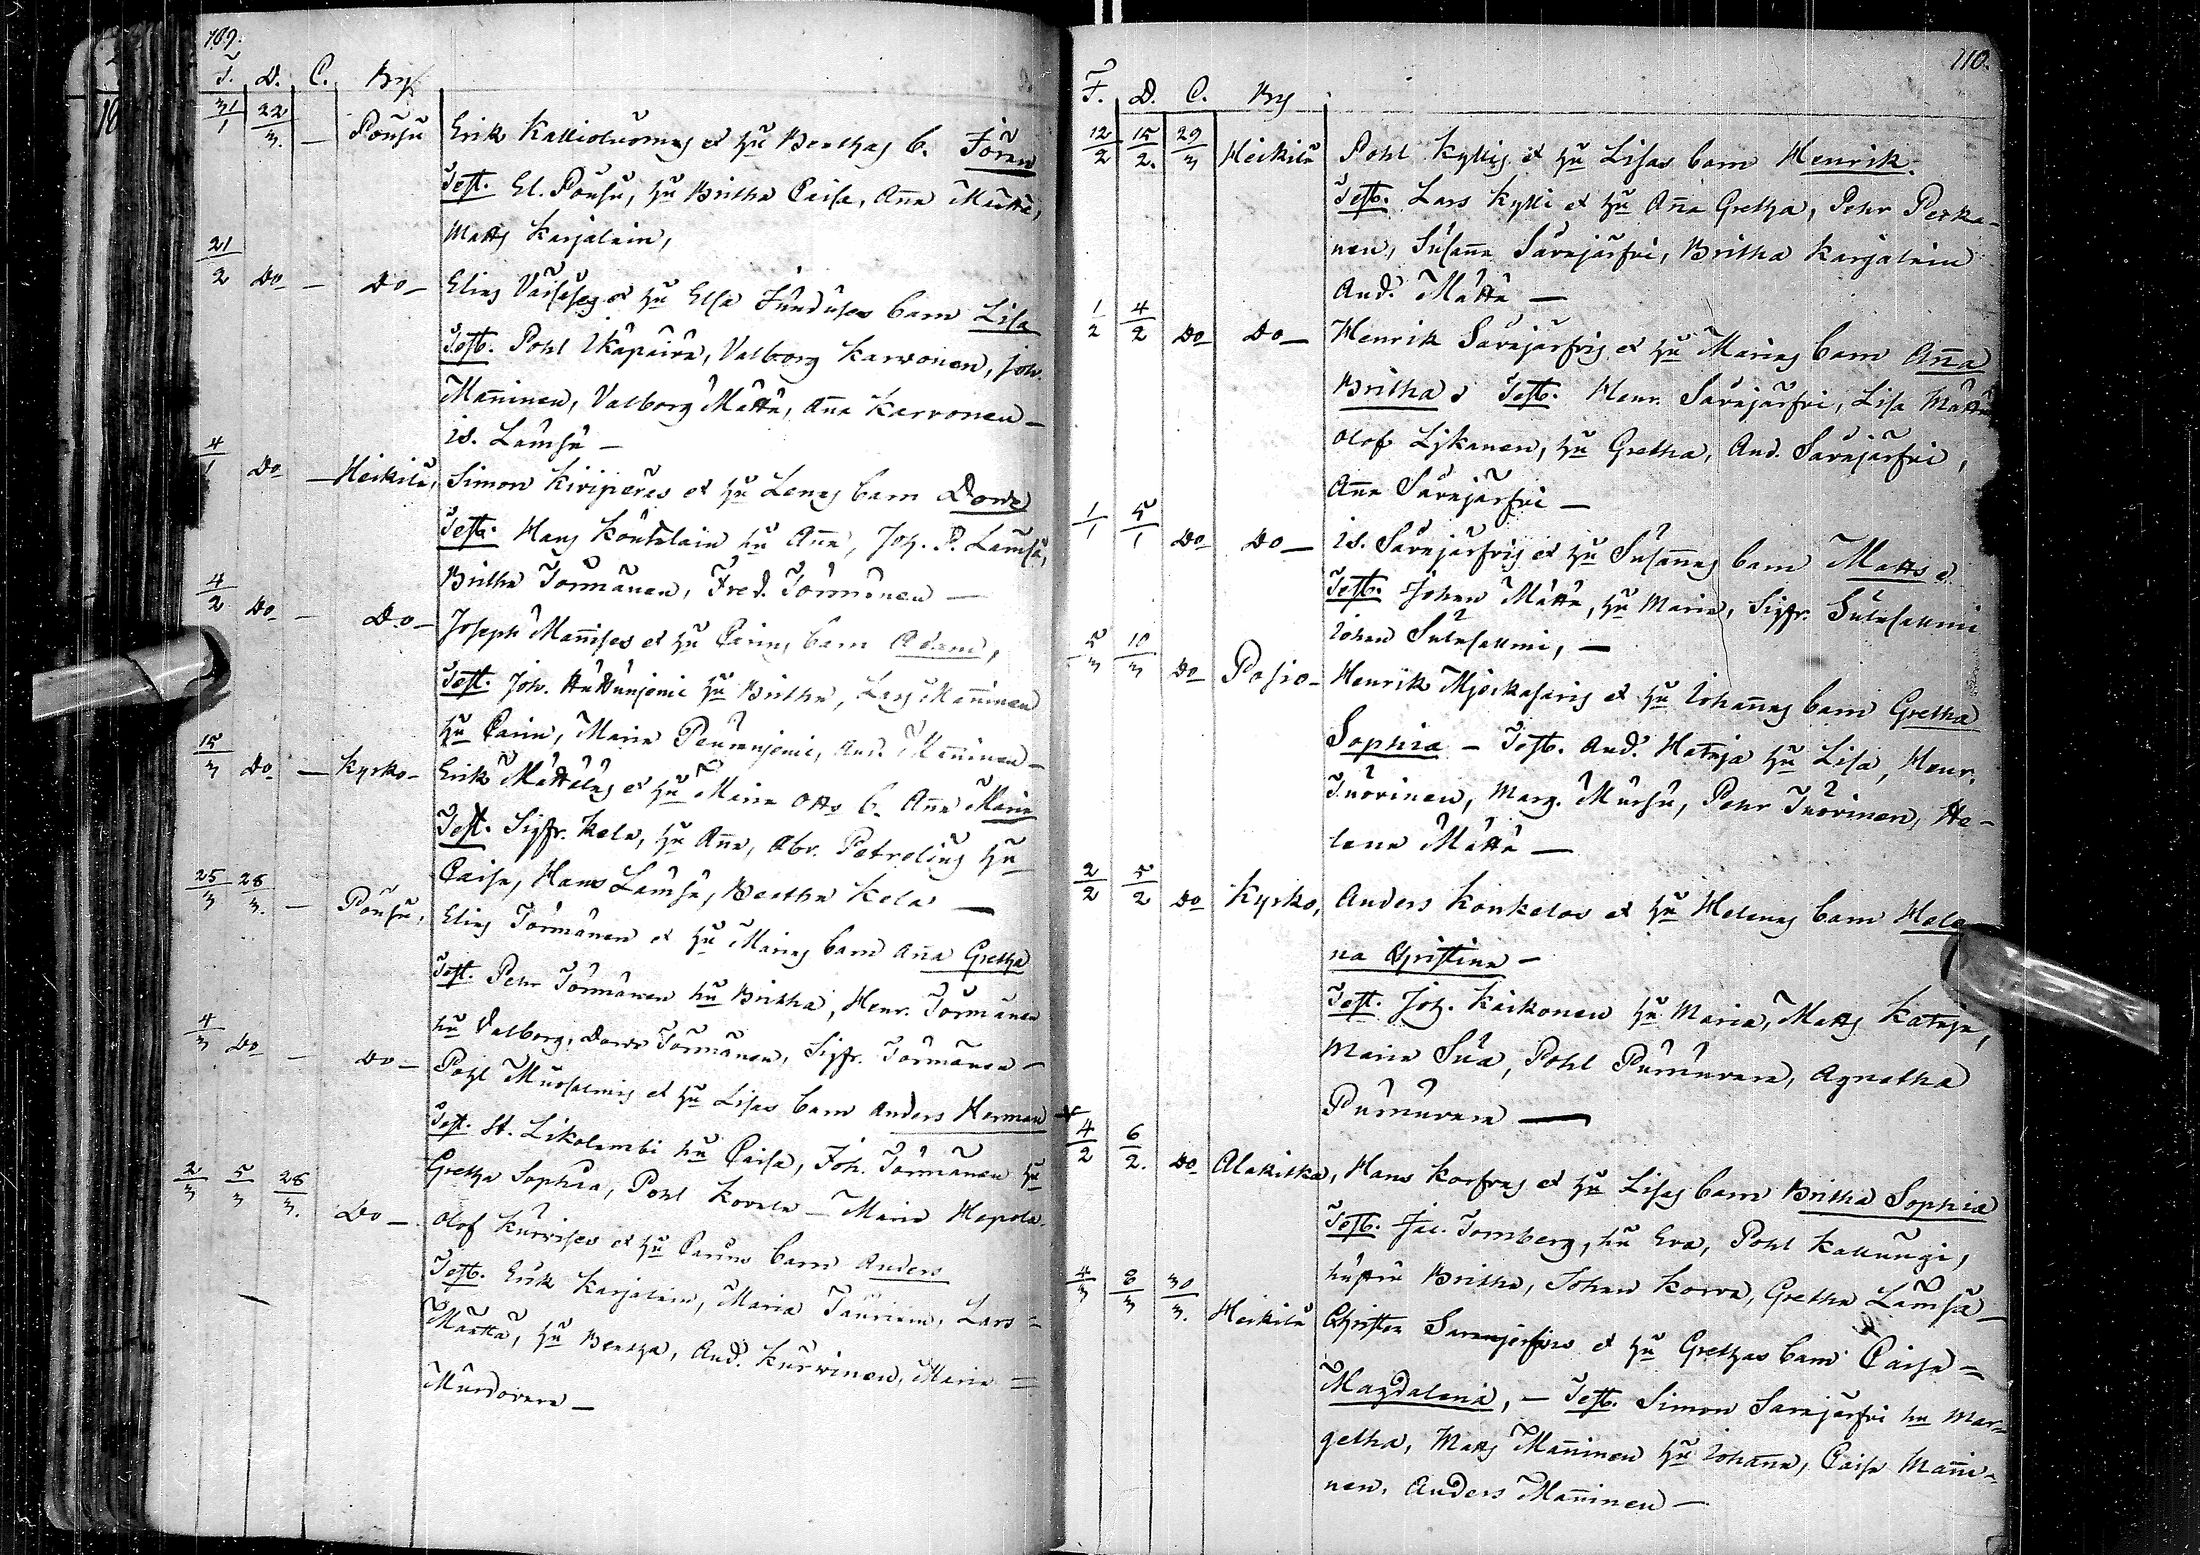 109.
F. D. C. By
31/1 22/3. — Pousu Erik Kalliotuomas et Hu Berthas b. Joran
Test. El. Pousu, Hu Britha Caisa, Aña Mätta,
Matts Karjalain,
21/2 Do — Do — Elias Väisäs et Hu Elsa barn Lisa
Test. Pohl Valborg Karvonen, Joh.
Mañinen, Valborg Mätta, Aña Karvonen —
Is. Lämsä —
4/1 Do — Heikilä, Simon Kiviperes et Hu Lenas barn Dorde
Test. Hans Kouklain hu Aña, Joh. P. Lämsä,
Britha Törmänen, Fred. Törmänen —
4/2 Do — Do — Joseph Mañises et Hu Carins barn Adam,
Test. Joh. Hu Britha, Lars Mañinen
Hu Carin, Maria And. Mañinen —
15/3 Do — Kyrko — Erik Mättäläs et Hu Maria b. Aña Maria
Test. Sigfr. Kela, Hu Aña, Abr. Petrelius Hu
Caisa, Hans Lämsä, Bertha Kela —
25/3 28/3. — Pousu, Elias Törmänen et Hu Marias barn Aña Gretha
Test. Pehr Törmänen hu Britha, Henr. Törmänen
hu Valborg, Dorde Törmänen, Sigfr. Törmänen —
4/3 Do — Do — Pohl Mursalmis et Hu Lisas barn Anders Herman
Test. St. Likolambi hu Caisa, Joh. Törmänen Hu
Gretha Sophia, Pohl Korvala — Maria Hepola.
2/3 5/3 28/3. Do — Olof Kurvises et Hu Carins barn Anders
Test. Erik Karjalain, Maria Taurien, Lars =
Mätta, Hu Bertha, And. Kurvinen, Maria =
Murdovara —
110.
F. D. C. By
12/2 15/2. 29/3 Heikilä Pohl Kyllis et Hu Lisas barn Henrik.
Test. Lars Kylli et Hu Aña Gretha, Pehr Perka-
nen, Susaña Särejärfvi, Britha Karjalain
And. Mätta —
1/2 4/2 Do Do — Henrik Särejärfvis et Hu Marias barn Aña
Britha. Test. Henr. Särejärfvi, Lisa Mätta
Olof Lykanen, Hu Gretha, And. Särejärfvi,
Aña Särejärfvi —
1/1 5/1 Do Do — Is. Särejärfvis et Hu Susañas barn Matts.
Test. Johan Mätta, Hu Maria, Sigfr. Sulasalmi
Johan Sulasalmi, —
5/3 10/3 Do Posio — Henrik Mjöekasaris et Hu Johañas barn Gretha
Sophia — Test. And. Hataja Hu Lisa, Henr.
Tuorinen, Marg. Mursu, Pehr Tuorinen, He-
lena Mätta —
2/2 5/2 Do Kyrko, Anders Konkelas et Hu Helenas barn Hele-
na Christina —
Test. Joh. Käikonen Hu Maria, Matts Kataja,
Maria Sua, Pohl Purnuvara, Agnetha
Purnuvara —
4/2 6/2. Do Alakitka, Hans Korfvas et Hu Lisas barn Britha Sophia
Test. Jac. Tornberg, hu Eva, Pohl Kallungi,
hustru Britha, Johan Korva, Gretha Lämsä —
4/3 8/3 30/3. Heikilä Christer Sarejerfvis et Hu Grethas barn Caisa =
Magdalena, — Test. Simon Sarejärfvi hu Mar-
getha, Matts Mañinen Hu Johaña, Caisa Mañi-
nen, Anders Mañinen —